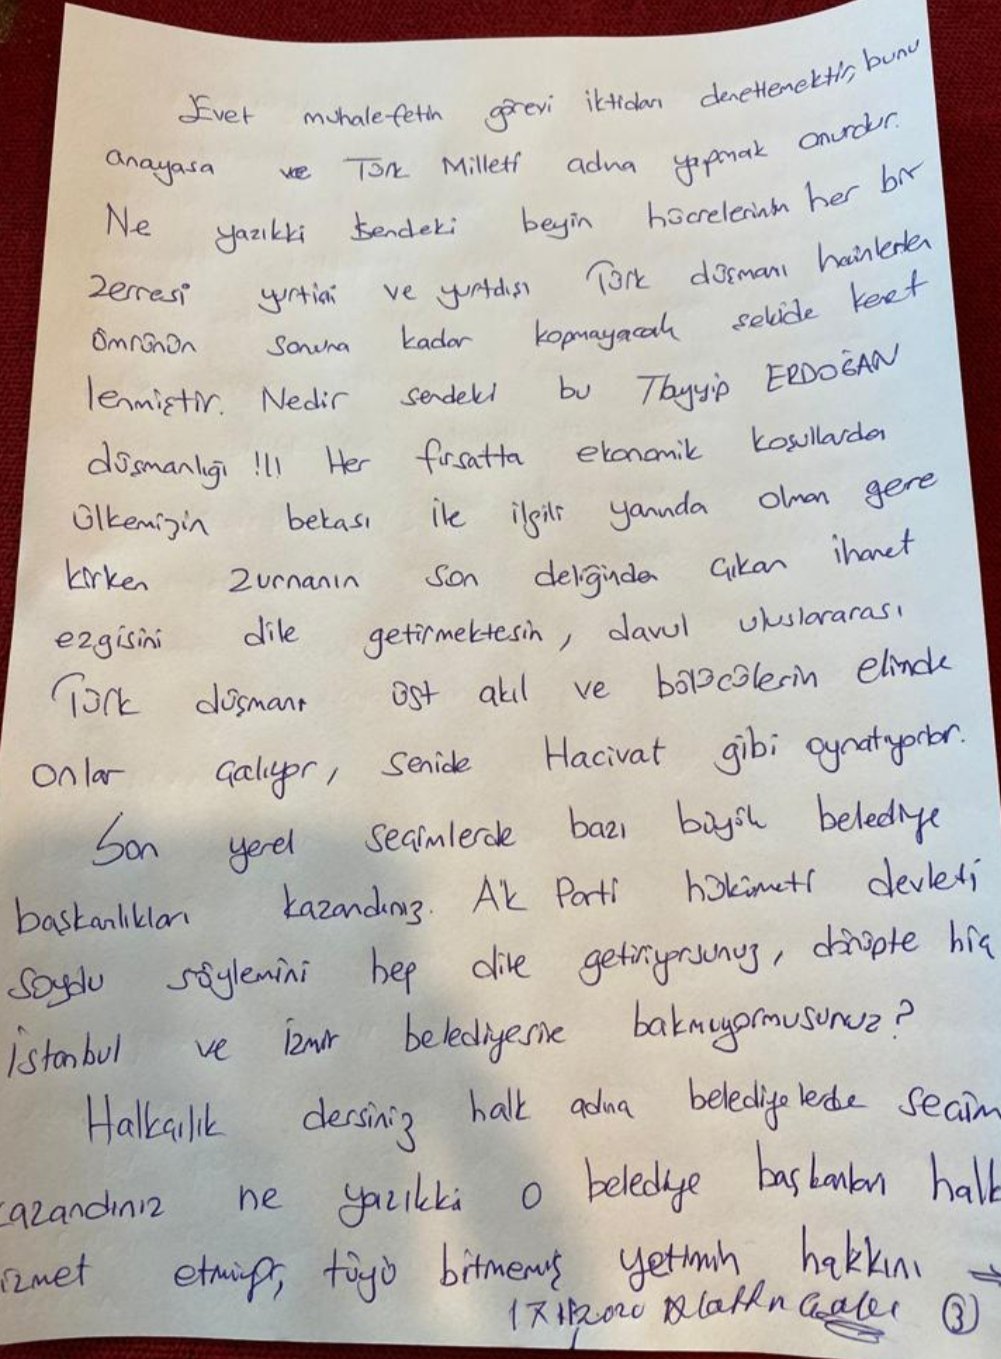 Evet muhalefetin görevi iktidarı denetlemektir, bunu
anayasa ve Türk Milleti adına yapmak onurdur.
Ne yazıkki sendeki beyin hücrelerinin her bir
zerresi yurtiçi ve yurtdışı Türk düşmanı hainlerden
ömrünün sonuna kadar kopmayacak şekilde kenet
lenmiştir. Nedir sendeki bu Tayyip ERDOĞAN
düşmanlığı !!! Her fırsatta ekonomik koşullarda
ülkemizin bekası ile ilgili yanında olman gere
kirken zurnanın son deliğinden çıkan ihanet
ezgisini dile getirmektesin, davul uluslararası
Türk düşmanı üst akıl ve bölücülerin elinde
onlar çalıyor, senide Hacivat gibi oynatıyorlar.
Son yerel seçimlerde bazı büyük belediye
başkanlıkları kazandınız. AK Parti hükümeti devleti
soydu söylemini hep dile getiriyorsunuz, dönüpte hiç
İstanbul ve İzmir belediyesine bakmıyormusunuz?
Halkçılık dersiniz halk adına belediyelerde seçim
kazandınız ne yazıkki o belediye başkanları halk
izmet etmiyor, tüyü bitmemiş yetimin hakkını →
2020 3